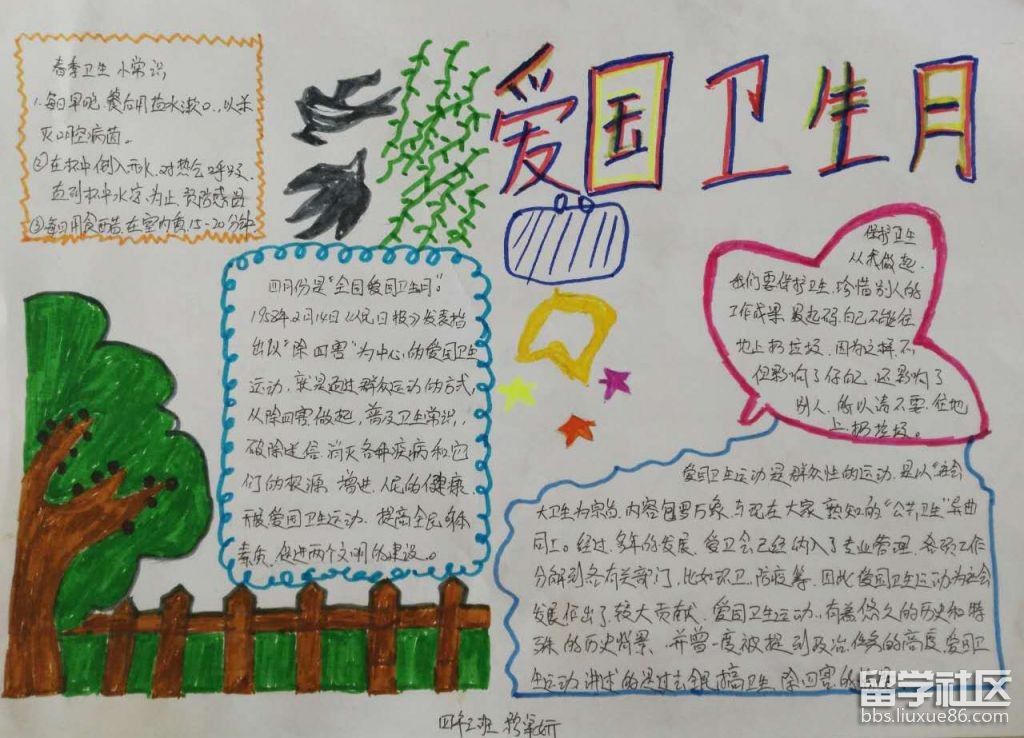 爱国卫生月
春季卫生小常识
1.每日早晚、餐后用盐水漱口,以杀
灭口腔病菌。
②在杯中倒入开水,对热会呼吸,
直到杯中水凉为止,预防感冒
③每日用食醋在室内熏15-20分钟
四月份是“全国爱国卫生月”。
1958年2月14日《人民日报》发表指
出以“除四害”为中心的爱国卫生
运动,就是通过群众运动的方式,
从除四害做起,普及卫生常识,
破除迷信 消灭各种疾病和它
们的根源 增进人民的健康
开展爱国卫生运动,提高全民身体
素质,促进两个文明的建设。
保护卫生
从我做起
我们要保护卫生,珍惜别人的
工作成果 最起码自己不能往
地上扔垃圾,因为这样不
但影响了自己,还影响了
别人,所以请不要往地
上扔垃圾。
爱国卫生运动是群众性的运动,是以“社会
大卫生为宗旨,内容包罗万象,与现在大家熟知的“公共卫生”异曲
同工。经过多年的发展,爱卫会已经纳入了专业管理,各项工作
分解到各有关部门,比如环卫、防疫等,因此爱国卫生运动为社会
发展作出了较大贡献,爱国卫生运动,有着悠久的历史和特
殊的历史背景,并曾一度被提到政治任务的高度,爱国卫
生运动讲述的是过去 搞卫生,除四害的
四年三班
留学社区
bbs.liuxue86.com